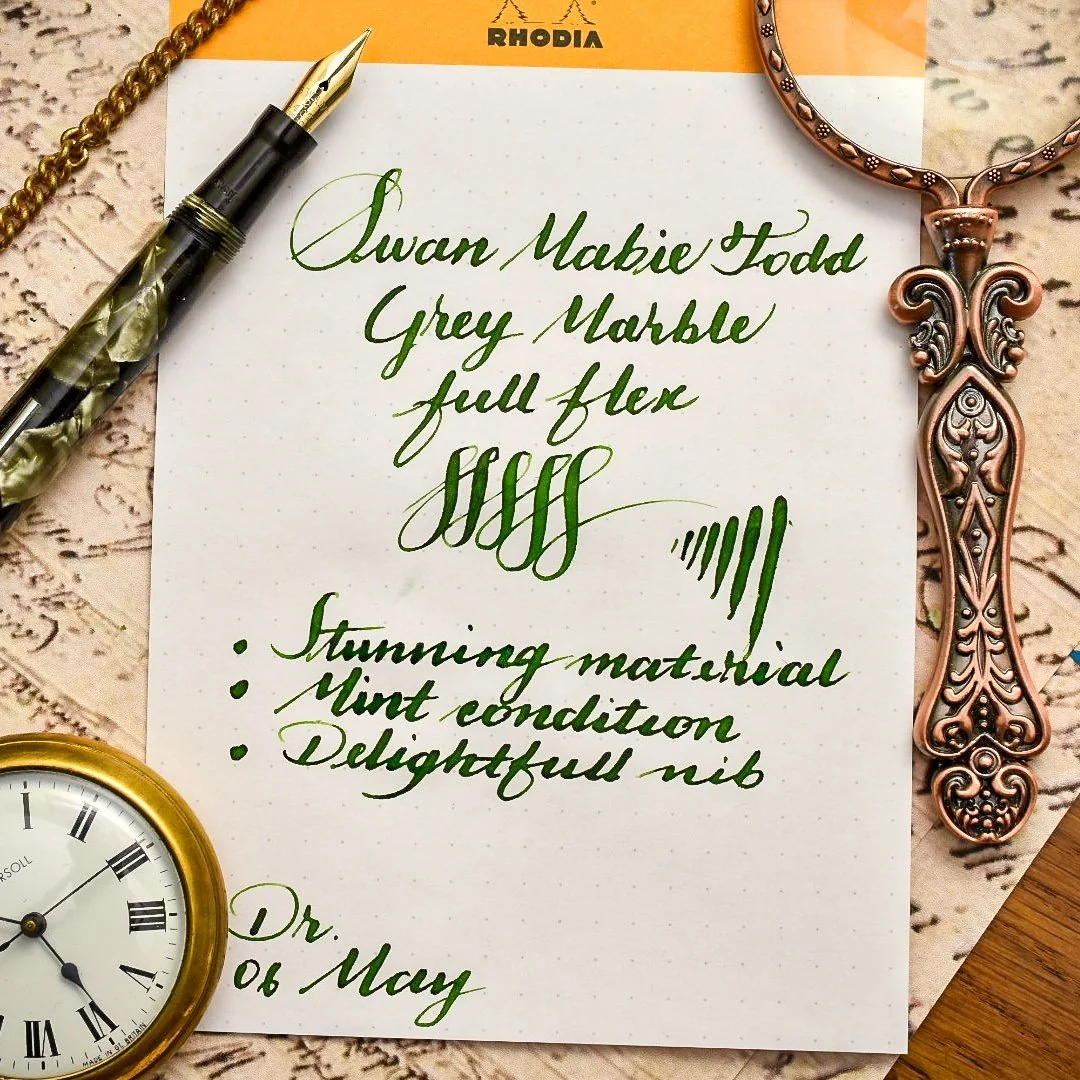 RHODIA
Swan Mabie Todd
Grey Marble
full flex
• Stunning material
• Mint condition
• Delightfull nib
Dr.
06 May
I
II
III
IIII
V
VI
VII
MADE IN GT. BRITAIN